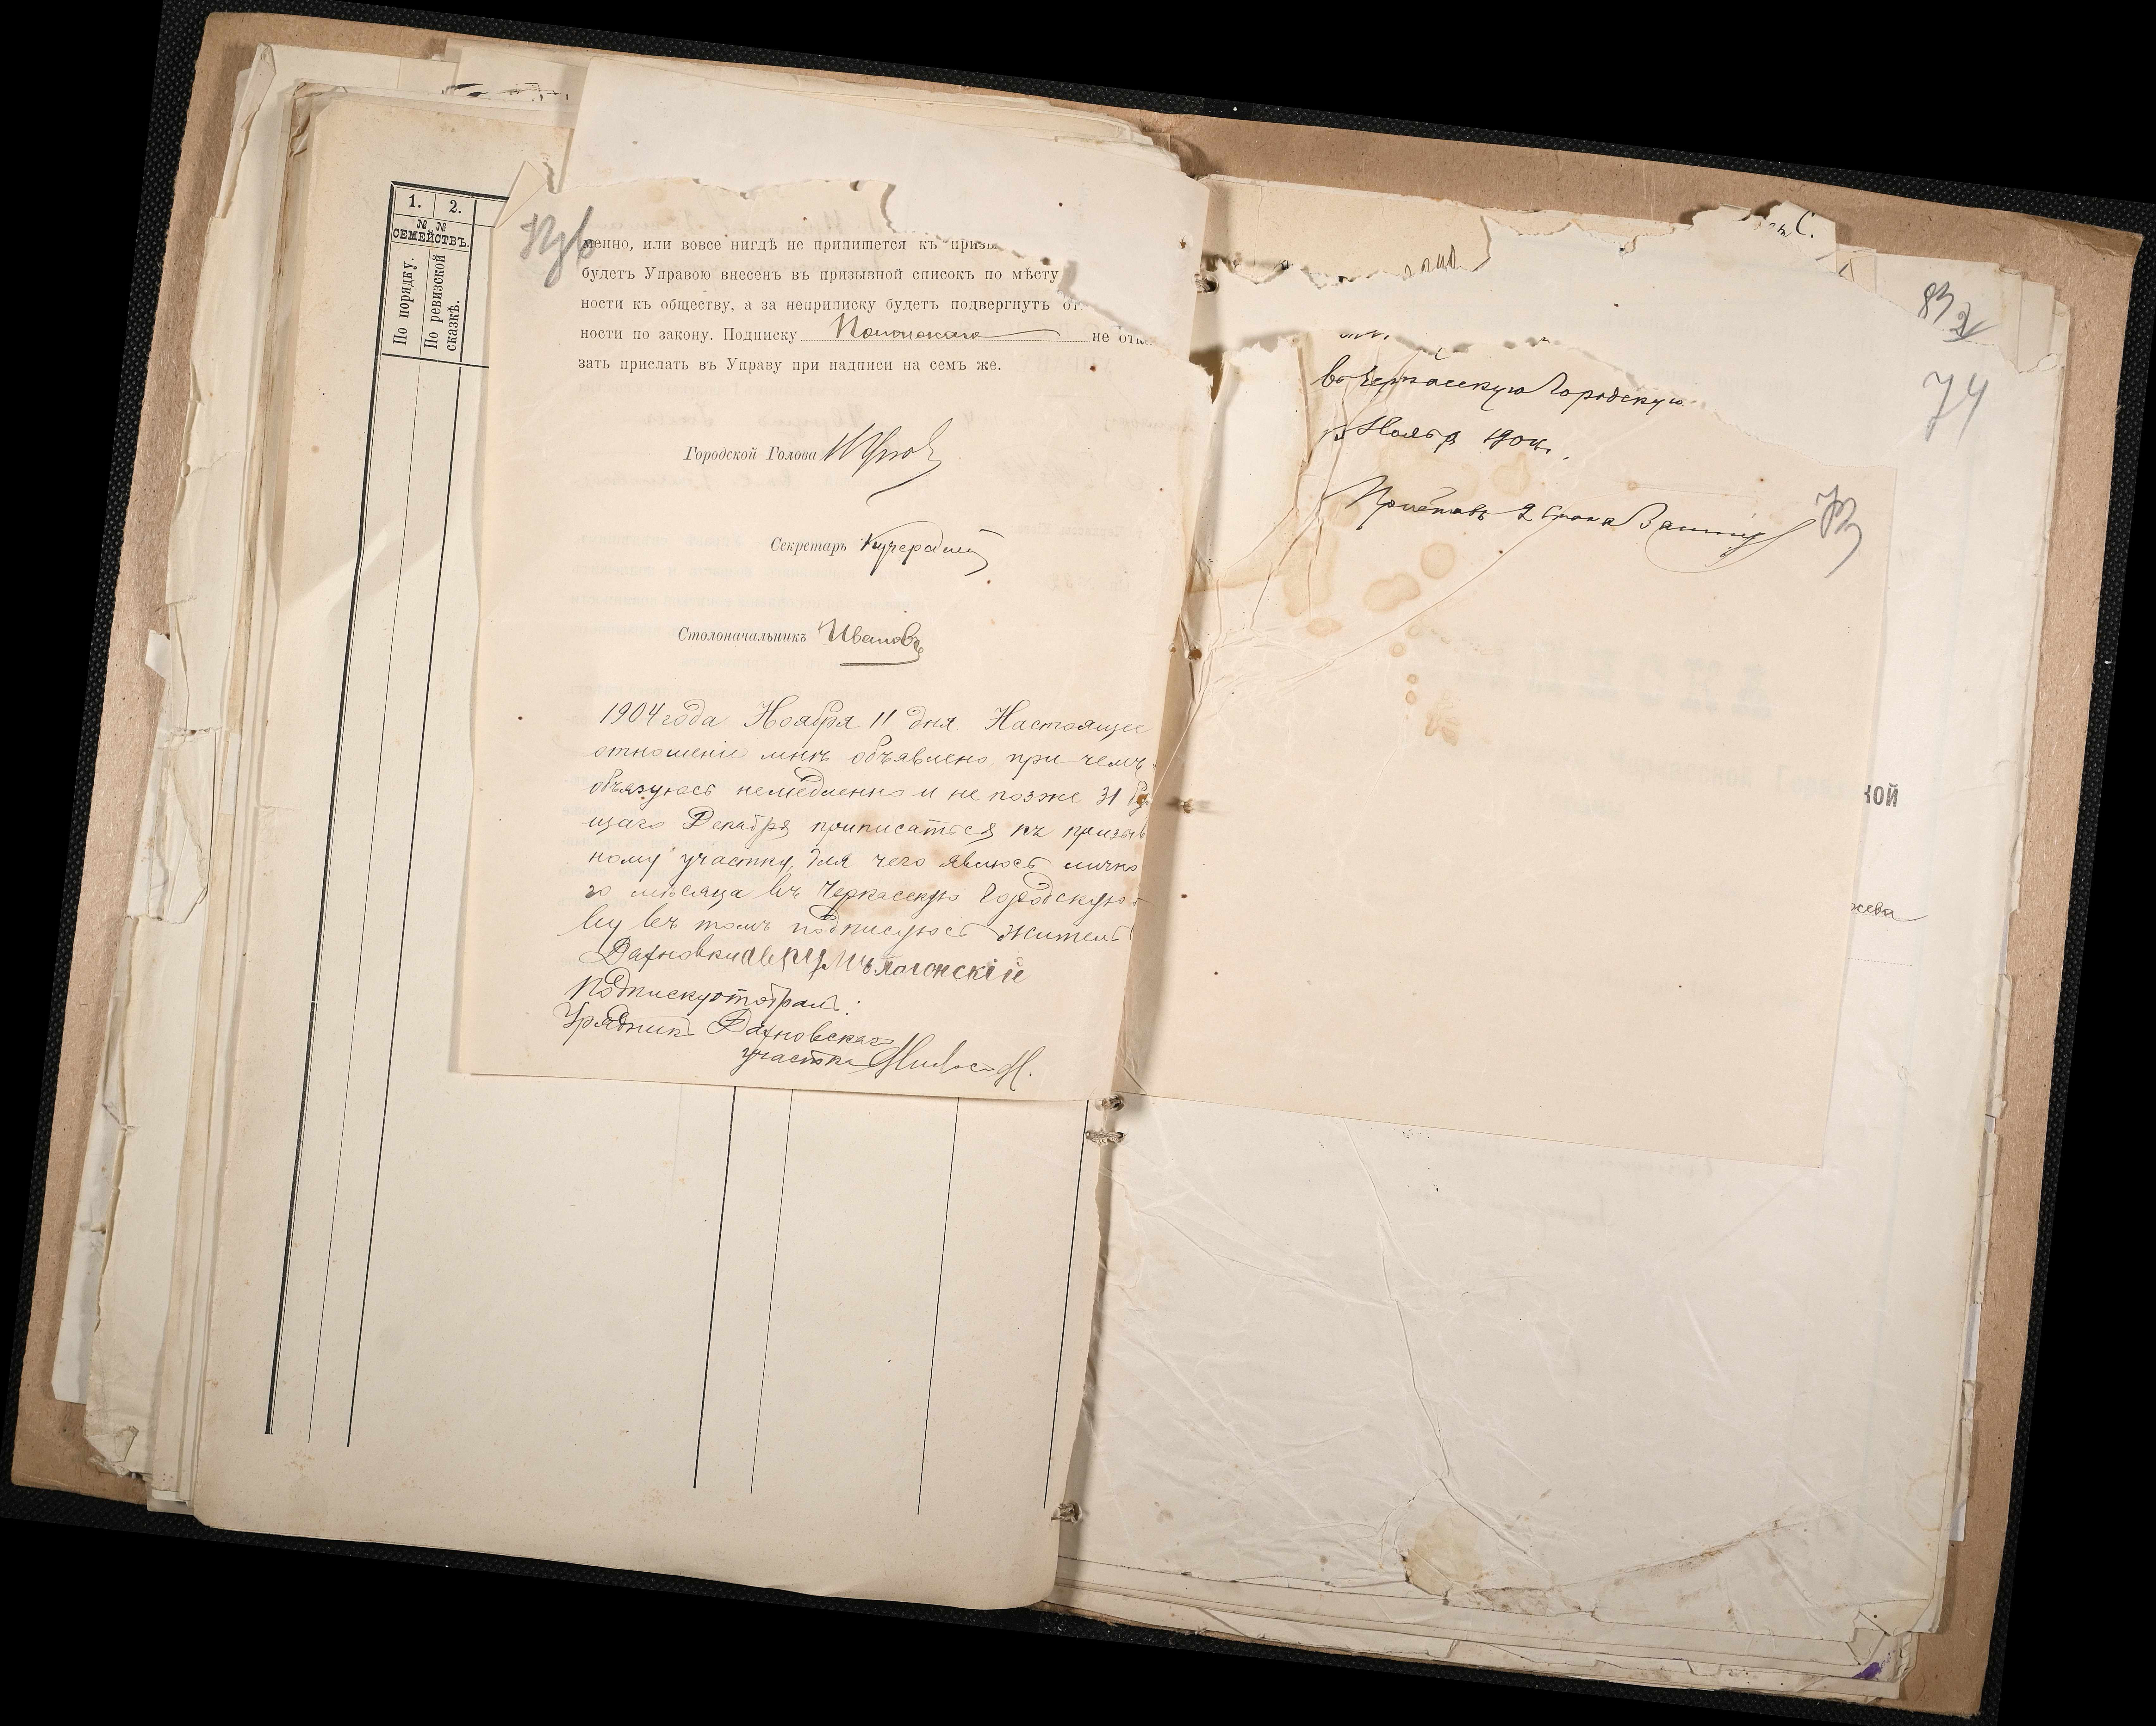 1. 2.
№ №
СЕМЕЙСТВЪ.
По порядку.
По ревизской
сказкѣ.
менно, или вовсе нигдѣ не припишется къ призы
будетъ Управою внесенъ въ призывной списокъ по мѣсту
ности къ обществу, а за неприписку будетъ подвергнутъ от
ности по закону. Подписку не отка
зать прислать въ Управу при надписи на семъ же.
Городской Голова
Секретарь
Столоначальникъ Ивановъ
1904 года Ноября 11 дня. Настоящее
отношеніе мнѣ объявлено, при чемъ
обязуюсь немедленно и не позже 31
щаго Декабря приписаться къ призыв
ному участку, для чего явлюсь лично
го мѣсяца въ Черкасскую Городскую
ву въ томъ подписуюсь житель
Дахновки
Подписку отобралъ:
Урядникъ Дахновскаго
участка
въ Черкасскую Городскую
Ноября 1904 г.
Приставъ 2 стана
73
74
83
кой